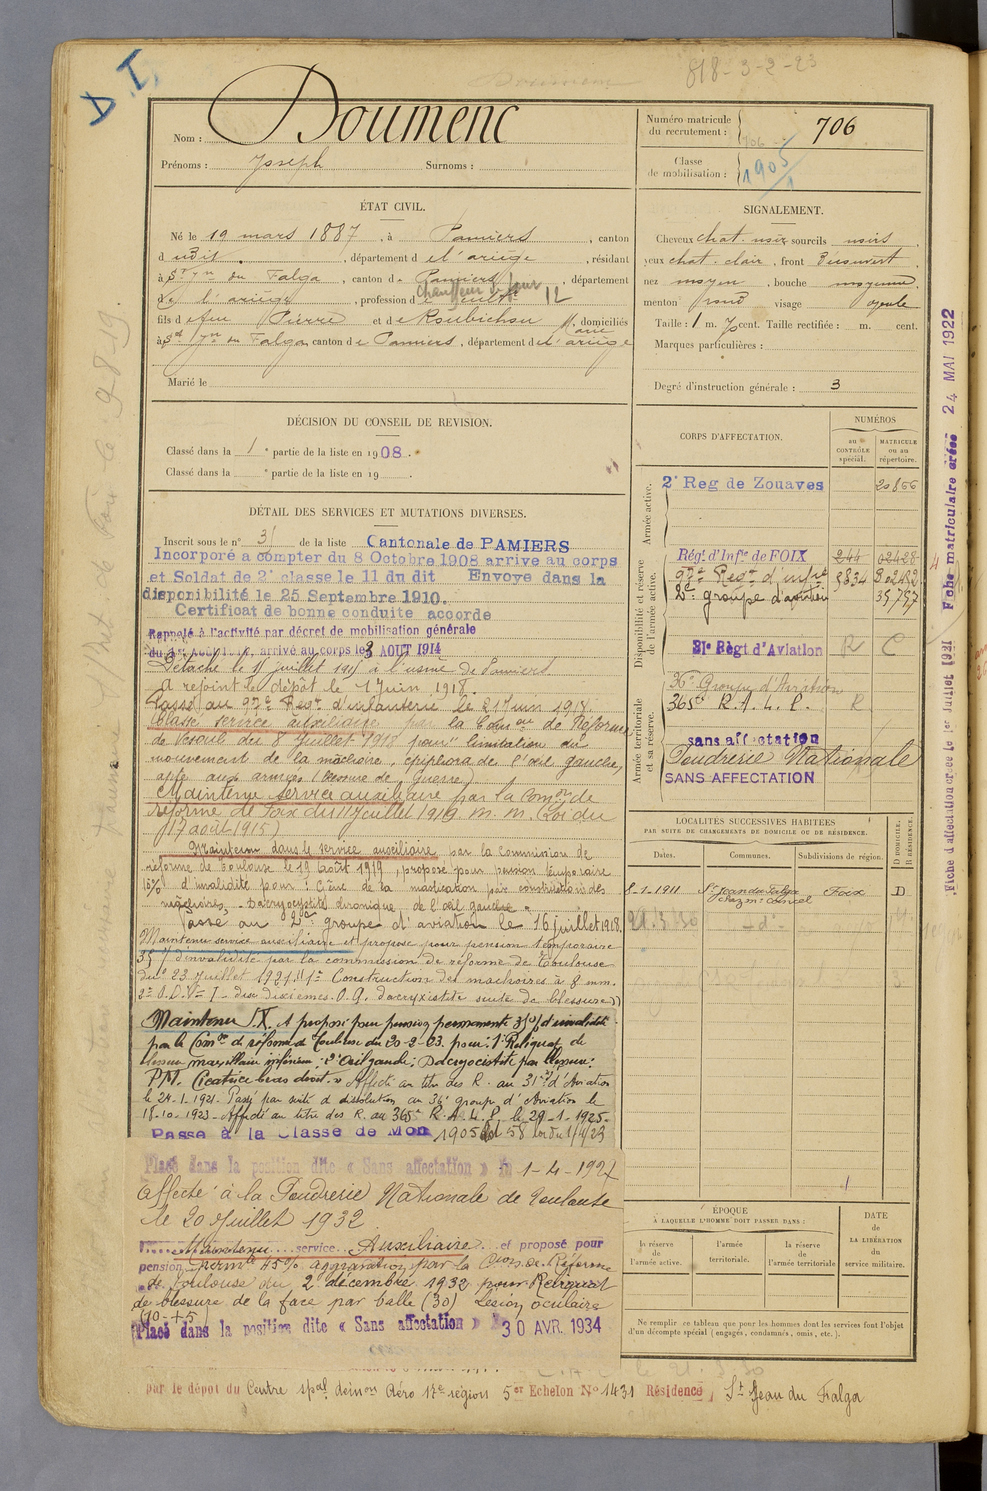 D. I.
818-3-2-23
Nom : Doumenc
Prénoms : Joseph Surnoms :
Numéro matricule du recrutement : 706
Classe de mobilisation : 1905
ÉTAT CIVIL.
Né le 19 mars 1887, à Pamiers, canton
dudit, département de l'ariège, résidant
à St Jn du Falga, canton de Pamiers, département
de l'ariège, profession de cult
Chauffeur de four 12
fils de feu Pierre et de Roubichou Marie, domiciliés
à St Jn du Falga canton de Pamiers, département de l'ariège
Marié le
SIGNALEMENT.
Cheveux chat. noir sourcils noirs
yeux chat. clair, front Découvert
nez moyen, bouche moyenne
menton rond visage ovale
Taille : 1 m. cent. Taille rectifiée : m. cent.
Marques particulières :
Degré d'instruction générale : 3
DÉCISION DU CONSEIL DE REVISION.
Classé dans la 1e partie de la liste en 1908.
Classé dans la e partie de la liste en 19
DÉTAIL DES SERVICES ET MUTATIONS DIVERSES.
Inscrit sous le n° 31 de la liste Cantonale de PAMIERS
Incorporé a compter du 8 Octobre 1908 arrive au corps
et Soldat de 2e classe le 11 du dit Envoye dans la
disponibilité le 25 Septembre 1910.
Certificat de bonne conduite accorde
Rappelé à l'activité par décret de mobilisation générale
du 1er Août 1914, arrivé au corps le 3 AOUT 1914
Détaché le juillet 1915 à l'usine de Pamiers
A rejoint le dépôt le 1 Juin 1918.
Passé au 97e Regt d'infanterie le 21 Juin 1918.
Classé service auxiliaire par la Comon de Réforme
de Vesoul du 8 Juillet 1918 pour "limitation du
mouvement de la mâchoire, épiphora de l'œil gauche,
apte aux armées (blessure de Guerre)
Maintenu service auxiliaire par la Comon de
réforme de Foix du 11 Juillet 1919. m. m. (Loi du
17 août 1915)
Maintenu dans le service auxiliaire par la Commission de
réforme de Toulouse le 19 août 1919, proposé pour pension temporaire
15% d'invalidité pour : Gêne de la mastication par constriction des
mâchoires, - Dacryocystite chronique de l'œil gauche"
Passé au 2e groupe d'aviation le 16 juillet 1918.
Maintenu service auxiliaire et proposé pour pension temporaire
35% d'invalidité par la commission de réforme de Toulouse
du 23 Juillet 1921 "1° Constriction des machoires à 8 mm.
2° O.D.V=I - dix dixièmes. O.G. dacryxistite suite de blessure"
Maintenu S.X. et proposé pour pension permanente 35% d'invalidité
par la Comon de réforme de Toulouse du 20-2-23. pour : 1° Reliquat de
lésion maxillaire inférieur ; 2° Œil gauche : Dacryocistite par blessure :
P.M. Cicatrice bras droit.» Affecté au titre des R. au 31e Rt d'Aviation
le 24-1-1921. Passé par suite de dissolution au 36e groupe d'Aviation le
15-10-1923 - Affecté au titre des R. au 365e R.A.L.P. le 29-1-1925.
Passe à la Classe de Mon 1905 Art 58 loi du 1/4/23
Placé dans la position dite « Sans affectation » le 1-4-1927
Affecté à la Poudrerie Nationale de Toulouse
le 20 Juillet 1932
Maintenu service Auxiliaire et proposé pour
pension Permte 45% aggravation par la Cion de Réforme
de Toulouse du 2 décembre 1932 pour Reliquat
de blessure de la face par balle (30) Lésion oculaire
(10+5)
Placé dans la position dite « Sans affectation » le 30 AVR. 1934
par le dépôt du Centre spal démon Aéro 17e région 5er Echelon No 1431 Résidence, St Jean du Falga
CORPS D'AFFECTATION.
NUMÉROS
au CONTRÔLE spécial.
MATRICULE ou au répertoire.
Armée active.
2e Reg de Zouaves 20866
Disponibilité et réserve de l'armée active.
Régt d'Infie de FOIX 244 02428
97e Regt d'infie 2834
2e groupe d'aviation 35,757
31e Règt d'Aviation R C
Armée territoriale et sa réserve.
36e Groupe d'Aviation
365e R.A.L.P. R
sans affectation
Poudrerie Nationale
SANS AFFECTATION
LOCALITÉS SUCCESSIVES HABITÉES
PAR SUITE DE CHANGEMENTS DE DOMICILE OU DE RÉSIDENCE.
Dates. Communes. Subdivisions de région. D DOMICILE. R RÉSIDENCE.
8-1-1911 St Jean du Falga Foix D
-d°-
ÉPOQUE
À LAQUELLE L'HOMME DOIT PASSER DANS :
la réserve de l'armée active.
l'armée territoriale.
la réserve de l'armée territoriale
DATE de LA LIBÉRATION du service militaire.
Ne remplir ce tableau que pour les hommes dont les services font l'objet
d'un décompte spécial (engagés, condamnés, omis, etc.).
Fiche d'affectation créée le 1er Juillet 1921 Fiche matriculaire créée 24 MAI 1922